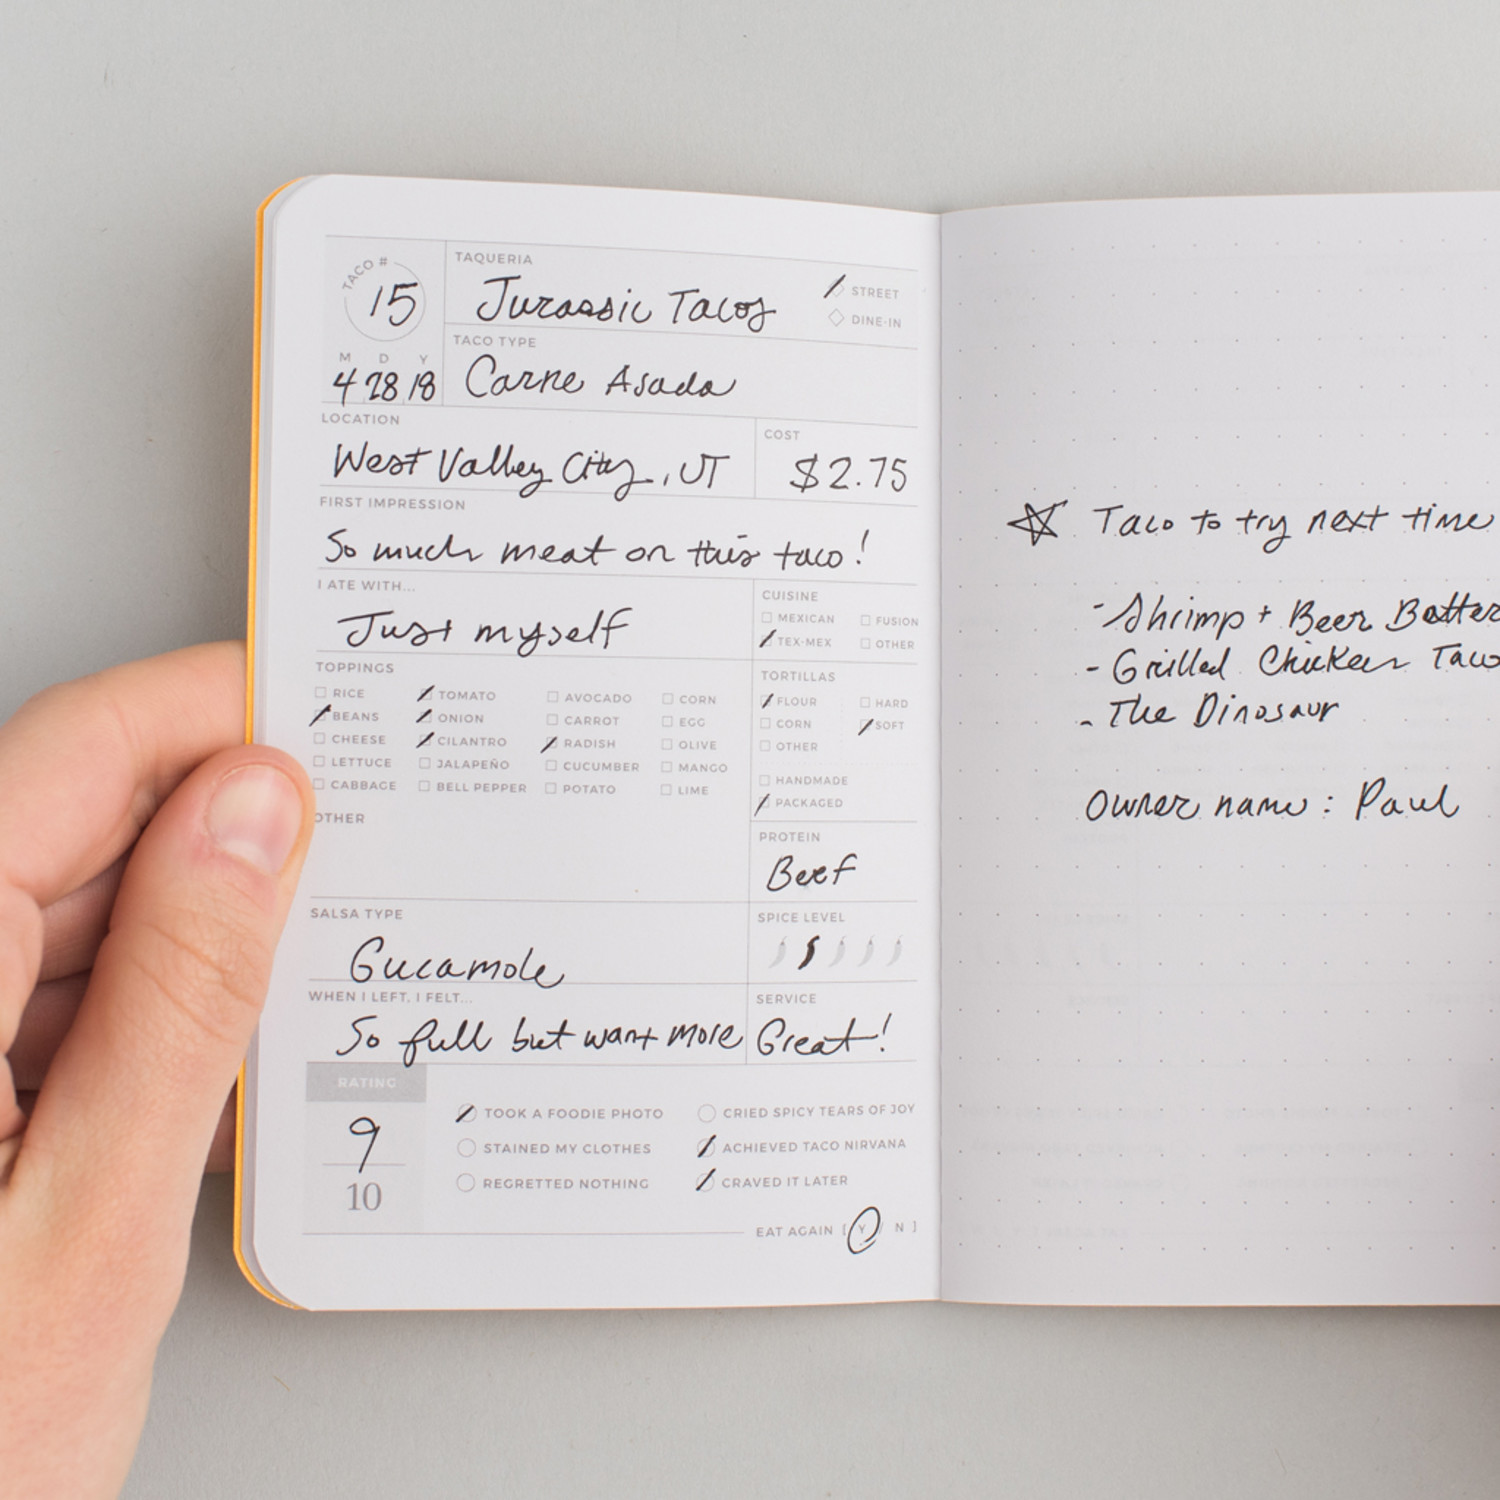 TACO #
15
M D Y
4 28 18
TAQUERIA
Jurassic Tacos
STREET
DINE-IN
TACO TYPE
Carne Asada
LOCATION
West Valley City, UT
COST
$2.75
FIRST IMPRESSION
So much meat on this taco!
I ATE WITH...
Just myself
CUISINE
MEXICAN FUSION
TEX-MEX OTHER
TOPPINGS
RICE TOMATO AVOCADO CORN
BEANS ONION CARROT EGG
CHEESE CILANTRO RADISH OLIVE
LETTUCE JALAPEÑO CUCUMBER MANGO
CABBAGE BELL PEPPER POTATO LIME
OTHER
TORTILLAS
FLOUR HARD
CORN SOFT
OTHER
HANDMADE
PACKAGED
PROTEIN
Beef
SALSA TYPE
Gucamole
SPICE LEVEL
WHEN I LEFT, I FELT...
So full but want more
SERVICE
Great!
RATING
9
10
TOOK A FOODIE PHOTO CRIED SPICY TEARS OF JOY
STAINED MY CLOTHES ACHIEVED TACO NIRVANA
REGRETTED NOTHING CRAVED IT LATER
EAT AGAIN [ Y / N ]
Taco to try next time
- Shrimp + Beer Batter
- Grilled Chicken Taco
- The Dinosaur
Owner name: Paul